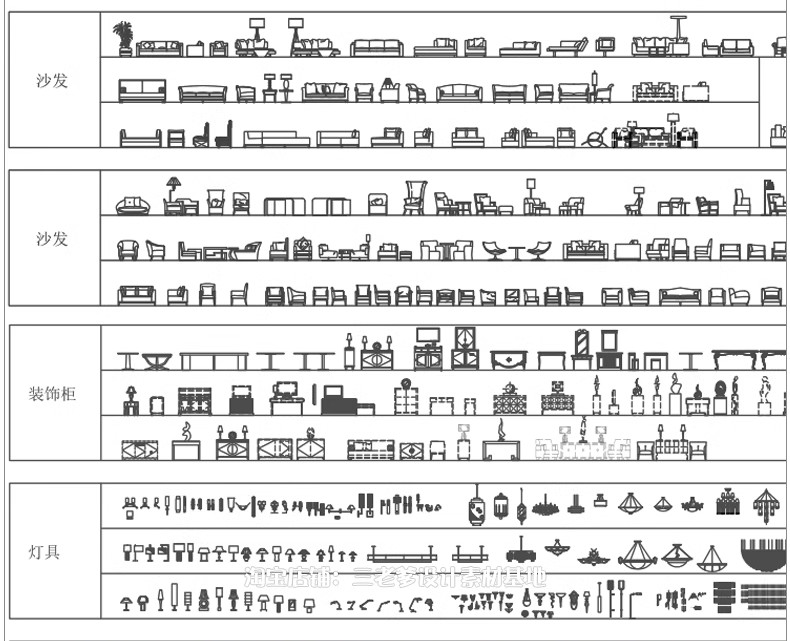 沙发
沙发
装饰柜
灯具
淘宝店铺：三老爹设计素材基地